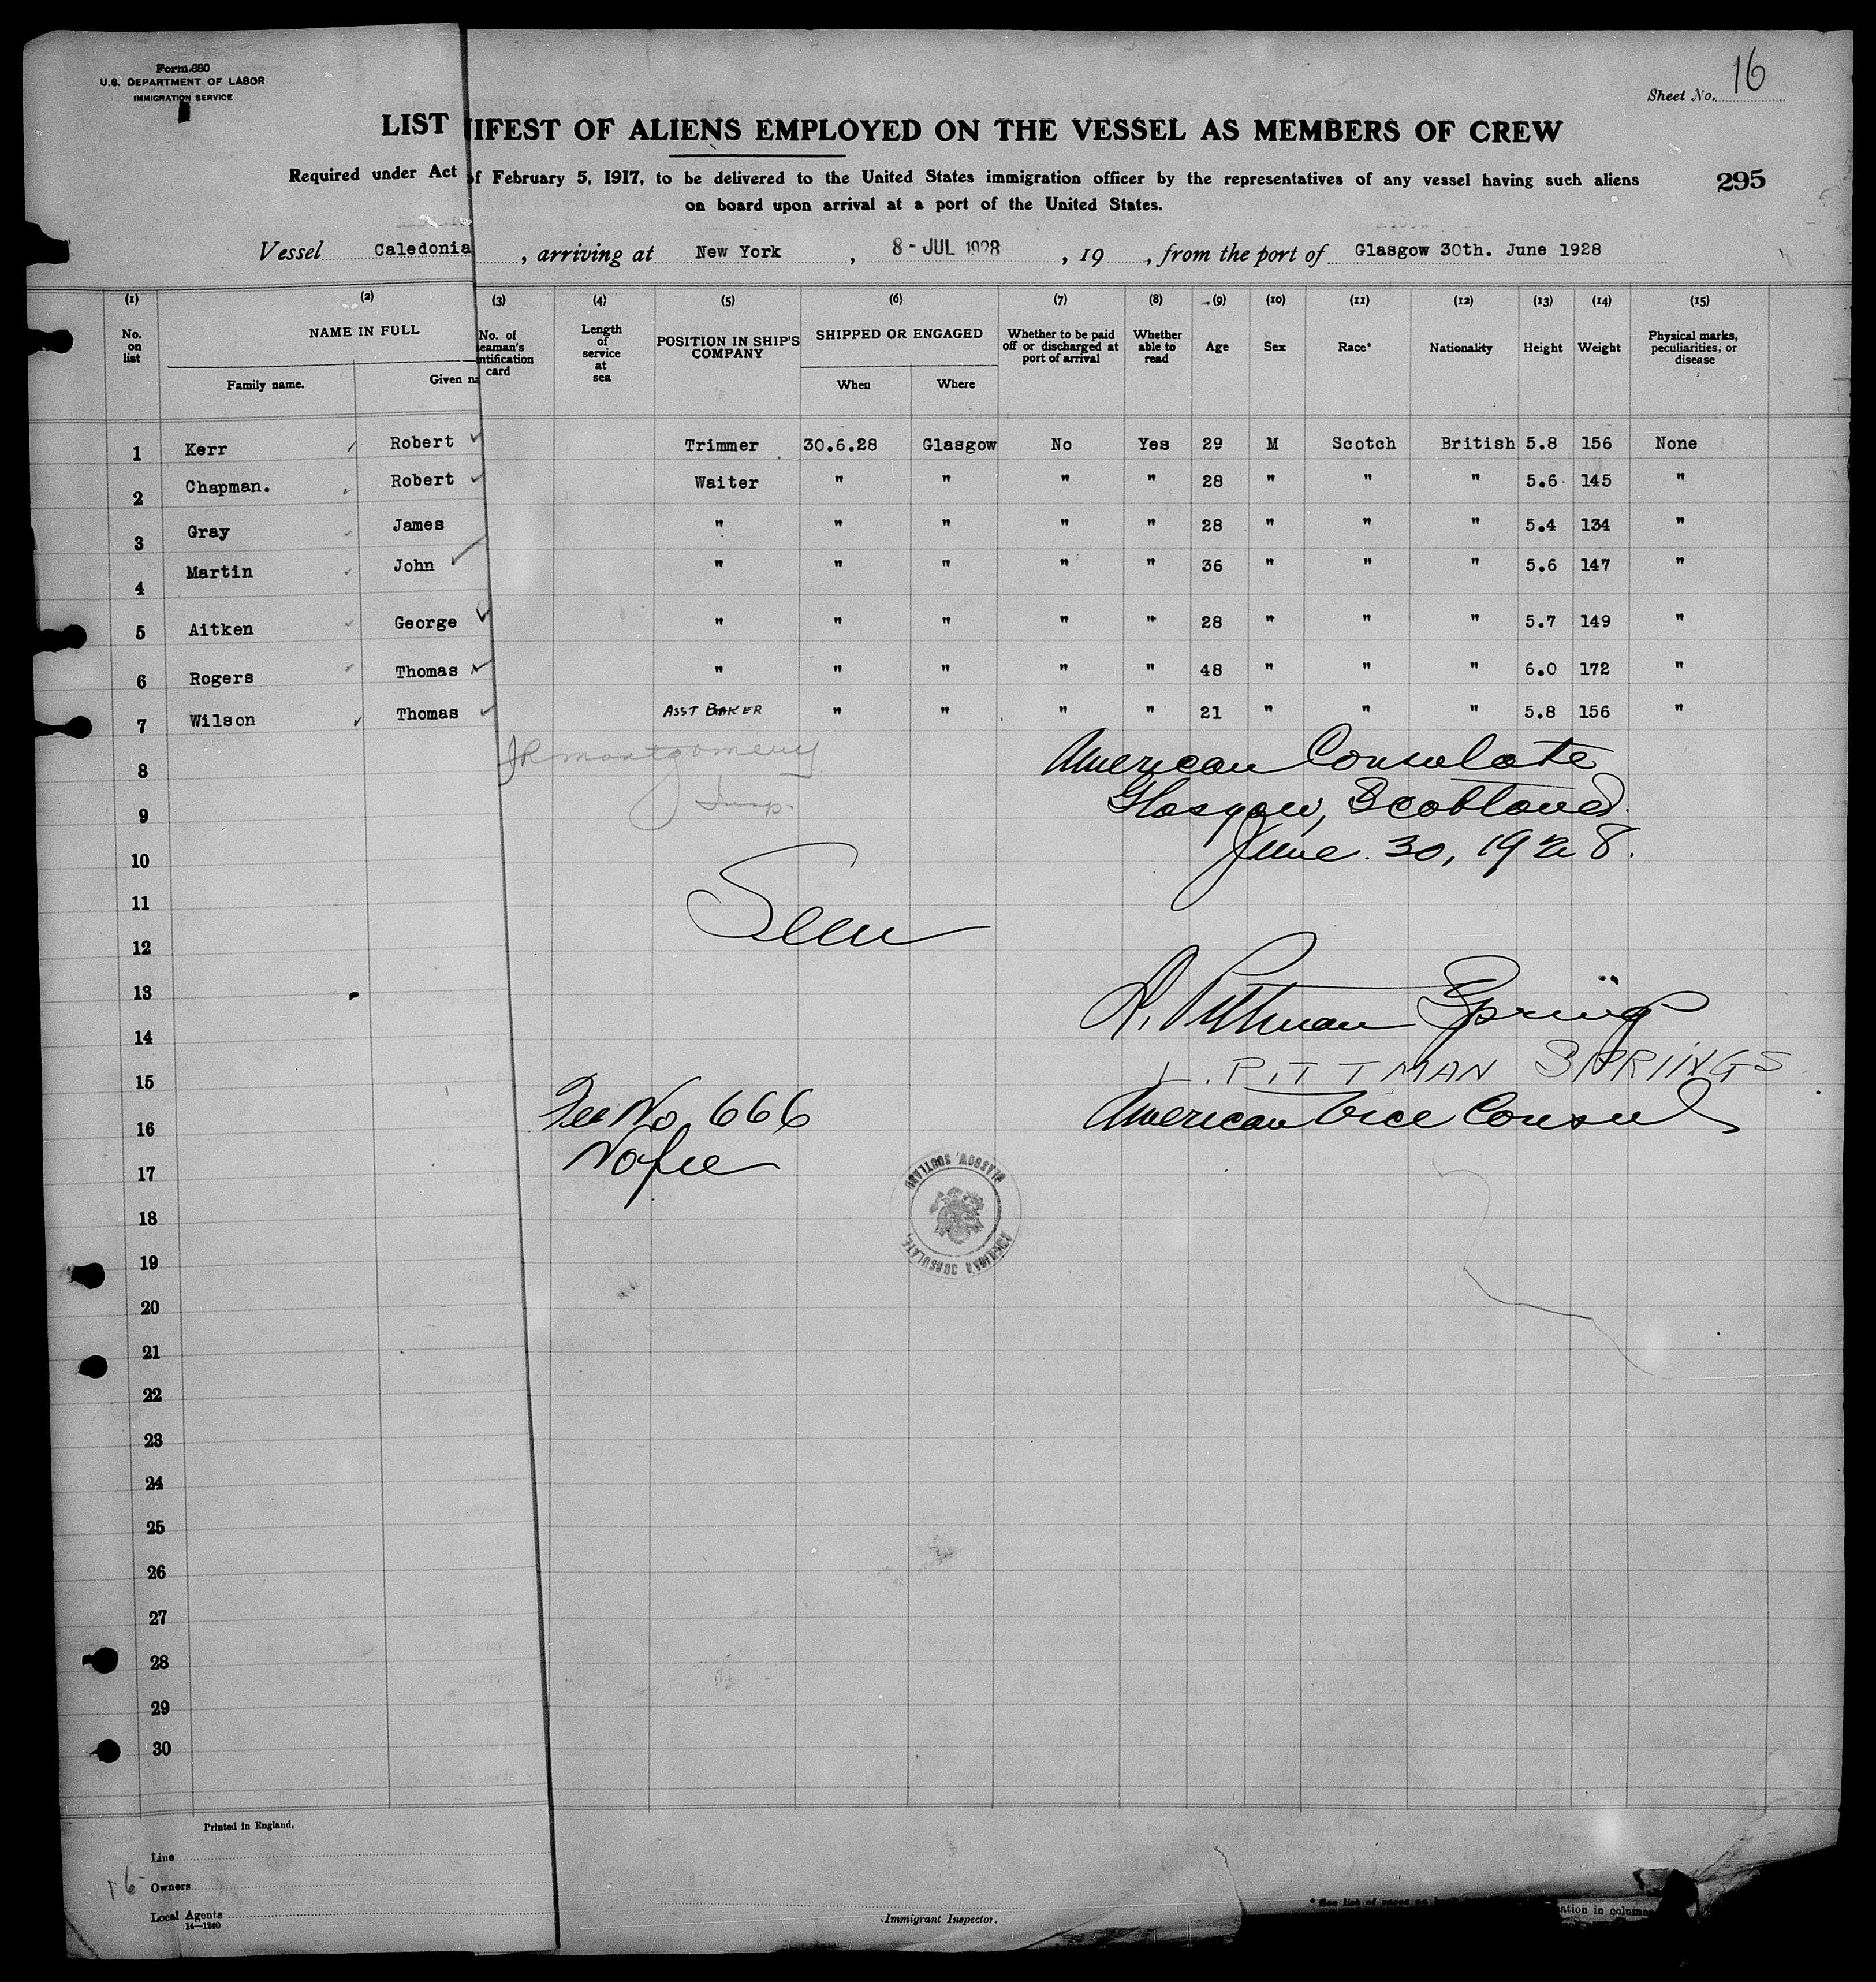 Form 680
U.S. DEPARTMENT OF LABOR
IMMIGRATION SERVICE
Sheet No. 16
LIST IIFEST OF ALIENS EMPLOYED ON THE VESSEL AS MEMBERS OF CREW
Required under Act of February 5, 1917, to be delivered to the United States immigration officer by the representatives of any vessel having such aliens
on board upon arrival at a port of the United States.
295
Vessel Caledonia, arriving at New York, 8 - JUL 1928, 19 , from the port of Glasgow 30th. June 1928
(1) (2) (3) (4) (5) (6) (7) (8) (9) (10) (11) (12) (13) (14) (15)
No. on list NAME IN FULL No. of eaman's ntification card Length of service at sea POSITION IN SHIP'S COMPANY SHIPPED OR ENGAGED Whether to be paid off or discharged at port of arrival Whether able to read Age Sex Race* Nationality Height Weight Physical marks, peculiarities, or disease
Family name. Given na When Where
1 Kerr Robert Trimmer 30.6.28 Glasgow No Yes 29 M Scotch British 5.8 156 None
2 Chapman. Robert Waiter " " " " 28 " " " 5.6 145 "
3 Gray James " " " " " 28 " " " 5.4 134 "
4 Martin John " " " " " 36 " " " 5.6 147 "
5 Aitken George " " " " " 28 " " " 5.7 149 "
6 Rogers Thomas " " " " " 48 " " " 6.0 172 "
7 Wilson Thomas ASST BAKER " " " " 21 " " " 5.8 156 "
JR Montgomery
Insp.
American Consulate
Glasgow, Scotland.
June. 30, 1928.
Seen
L. Pittman Springs
L. PITTMAN SPRINGS
American Vice Consul
See No 666
No fee
GLASGOW, SCOTLAND
AMERICAN CONSULATE,
8
9
10
11
12
13
14
15
16
17
18
19
20
21
22
23
24
25
26
27
28
29
30
Printed in England.
Line
16 Owners
Local Agents
14—1240
Immigrant Inspector.
* See list of races on
ation in columns